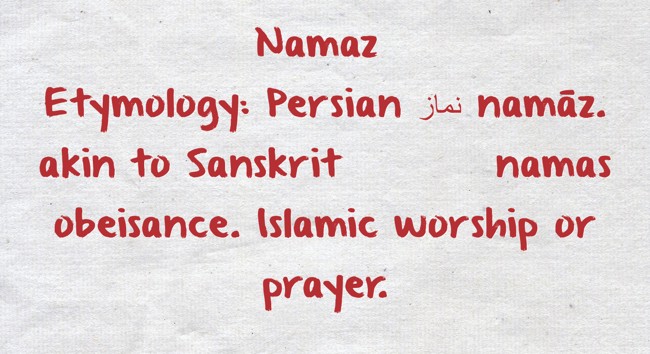 Namaz
Etymology: Persian نماز namāz.
akin to Sanskrit namas
obeisance. Islamic worship or
prayer.